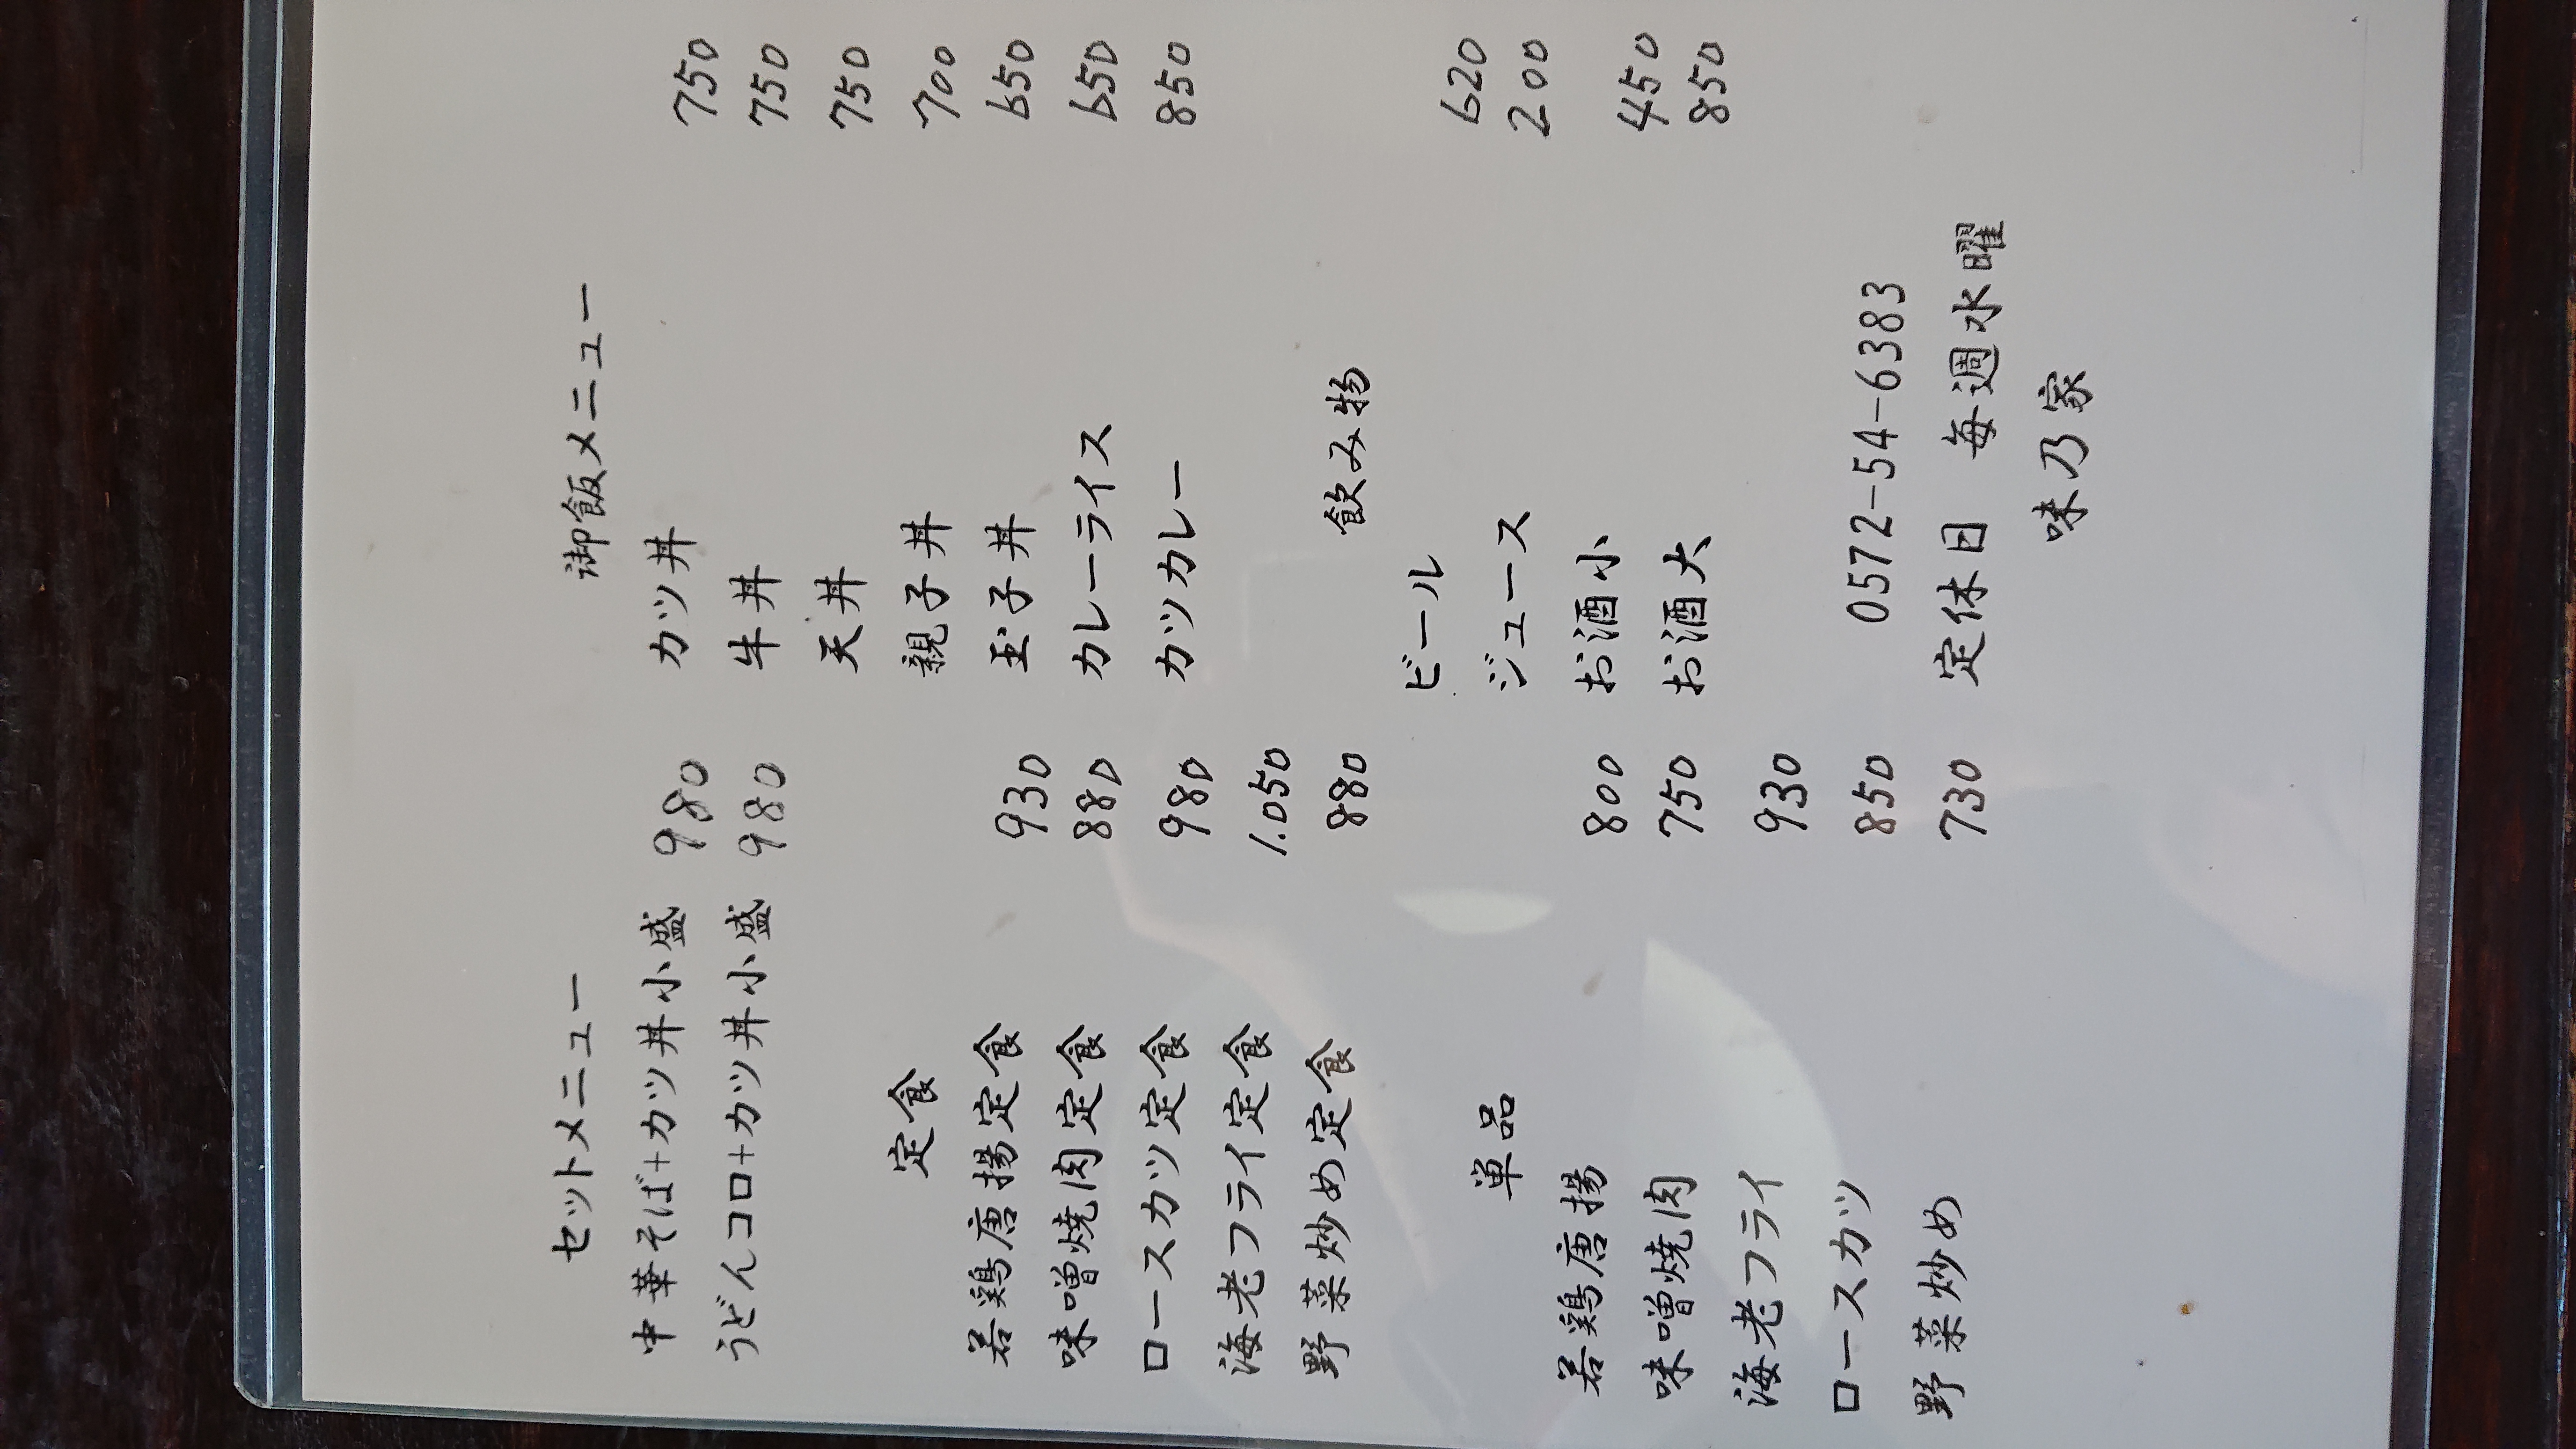 セットメニュー
中華そば+カツ丼小盛 980
うどんコロ+カツ丼小盛 980
定食
若鶏唐揚定食 930
味噌焼肉定食 880
ロースカツ定食 980
海老フライ定食 1.050
野菜炒め定食 880
単品
若鶏唐揚 800
味噌焼肉 750
海老フライ 930
ロースカツ 850
野菜炒め 730
御飯メニュー
カツ丼 750
牛丼 750
天丼 750
親子丼 700
玉子丼 650
カレーライス 650
カツカレー 850
飲み物
ビール 620
ジュース 200
お酒小 450
お酒大 850
0572-54-6383
定休日 毎週水曜
味乃家